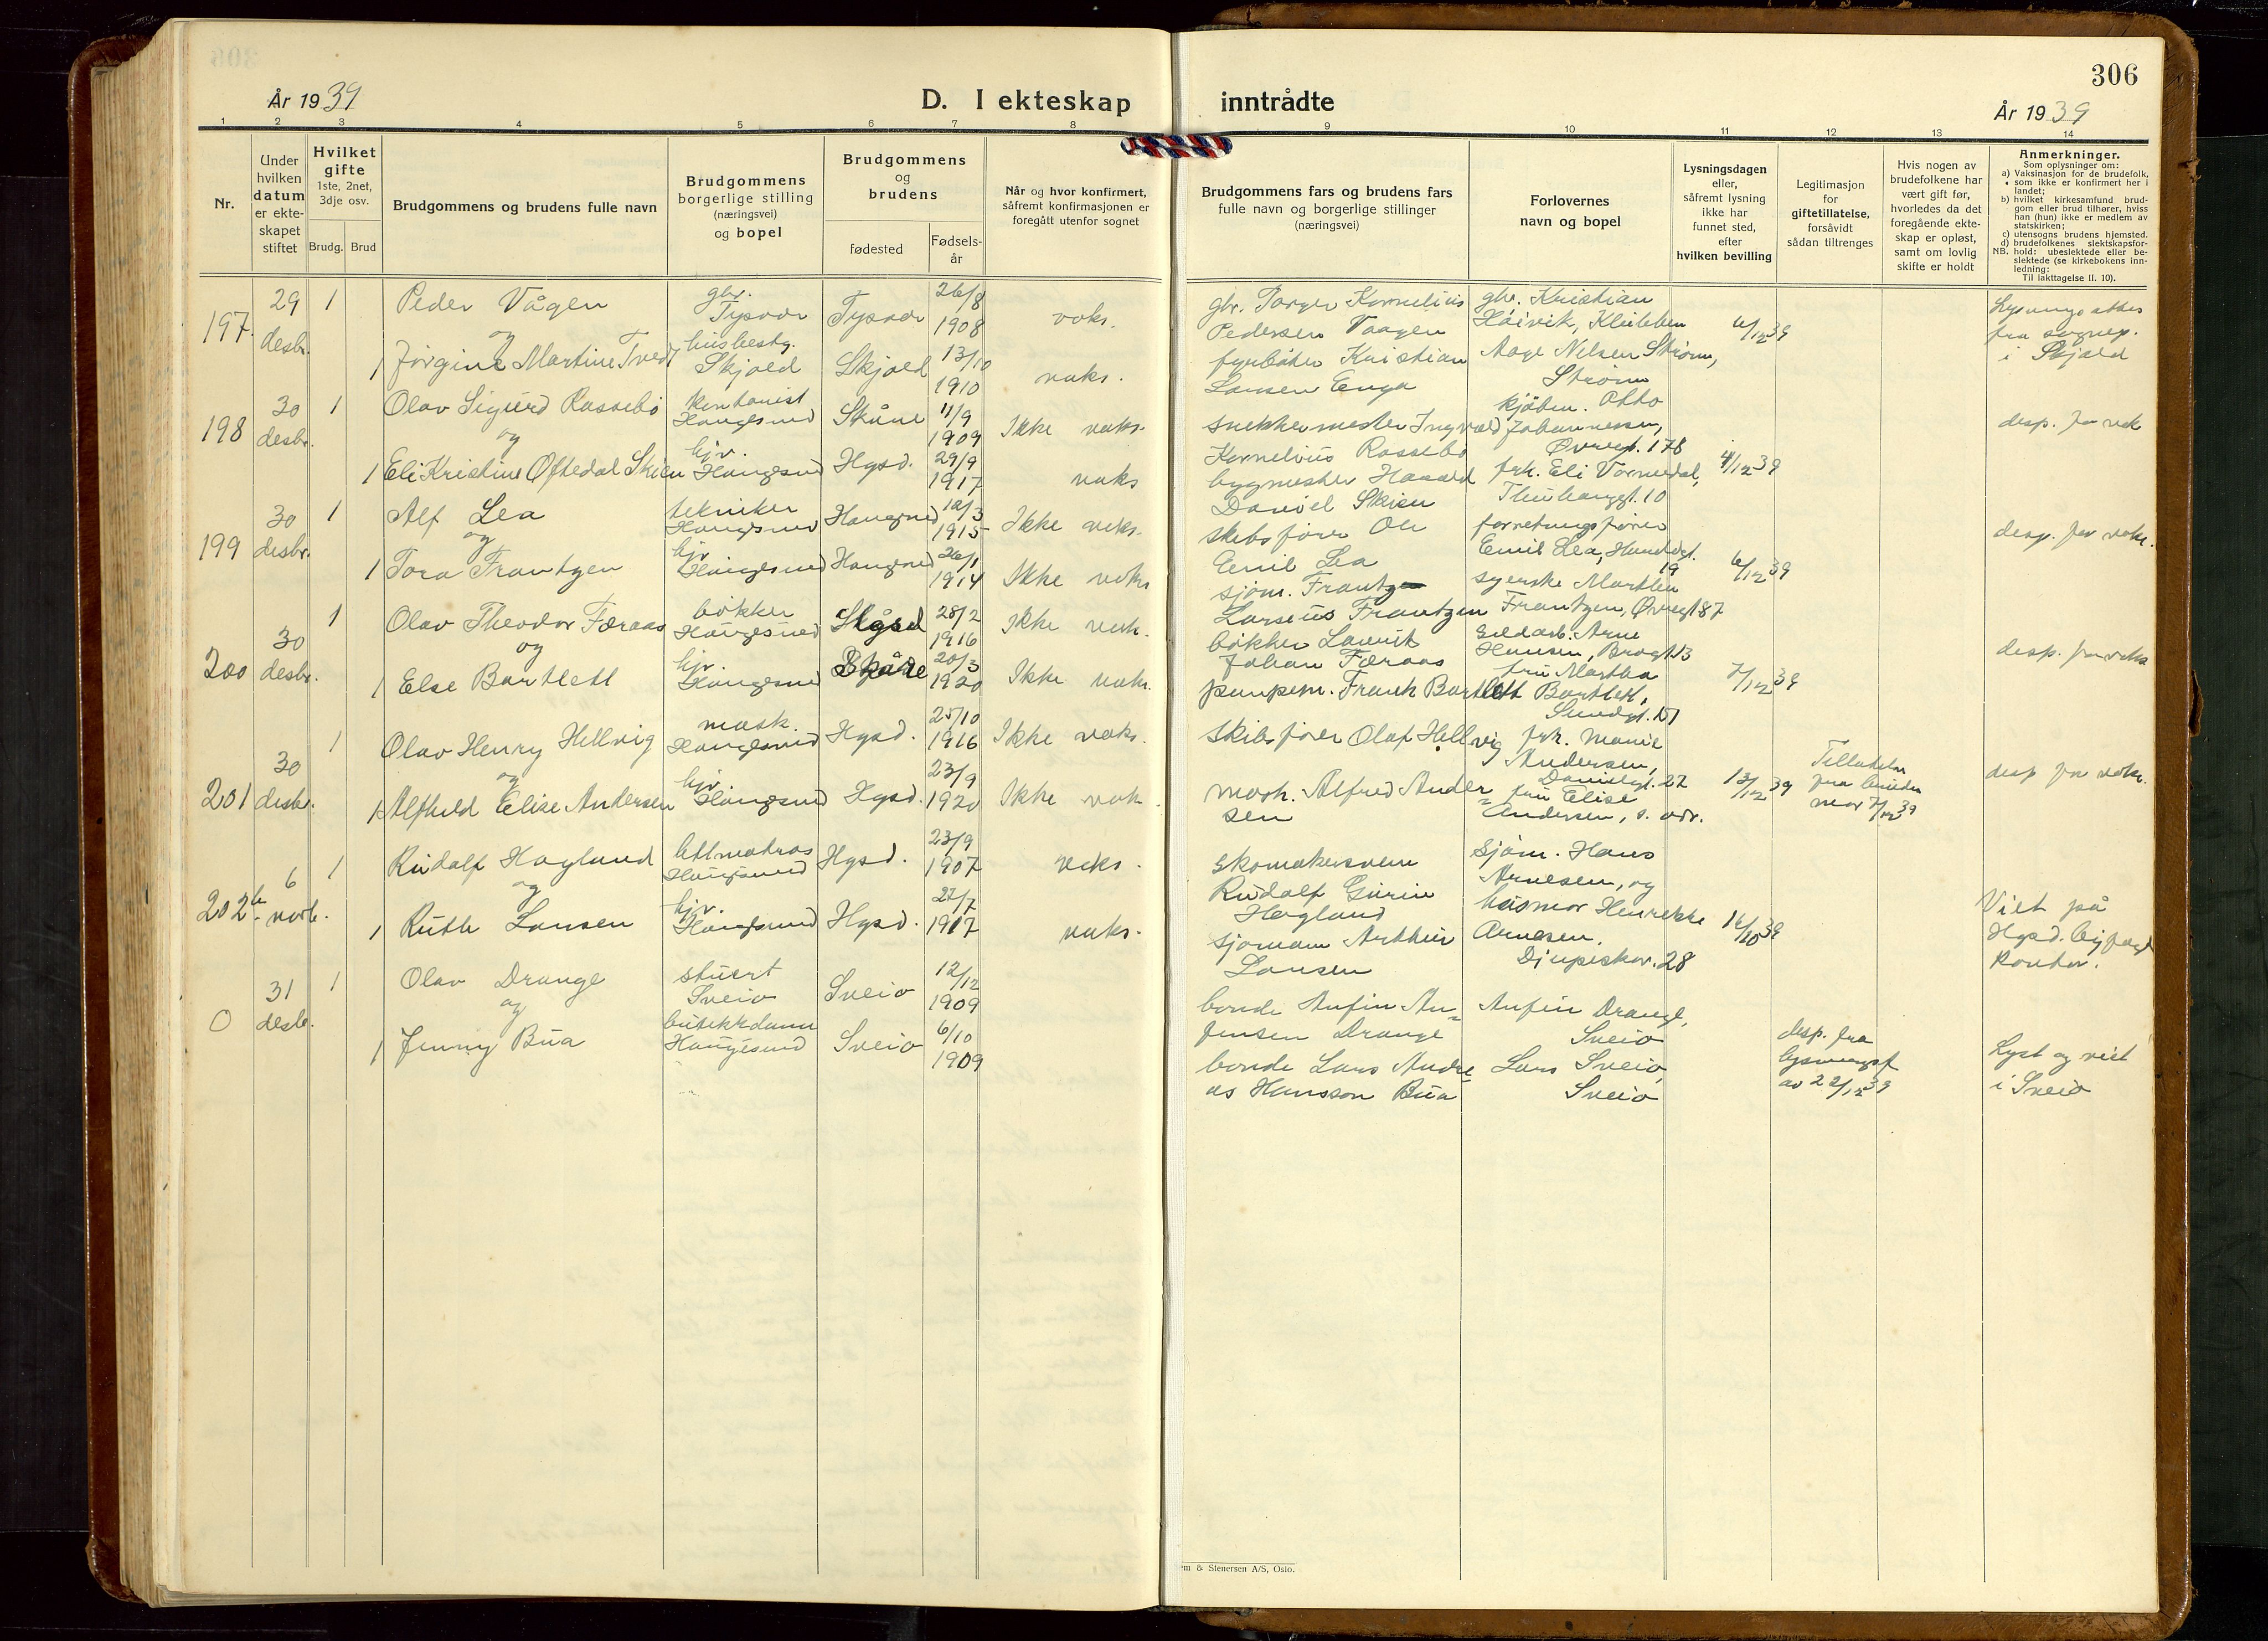 306
År 1939
D. I ekteskap inntrådte
År 1939
1 2 3 4 5 6 7 8 9 10 11 12 13 14
Nr.
Under hvilken datum er ekteskapet stiftet
Hvilket gifte
1ste, 2net, 3dje osv.
Brudg. Brud
Brudgommens og brudens fulle navn
Brudgommens borgerlige stilling (næringsvei) og bopel
Brudgommens og brudens
fødested
Fødsels-år
Når og hvor konfirmert, såfremt konfirmasjonen er foregått utenfor sognet
Brudgommens fars og brudens fars fulle navn og borgerlige stillinger (næringsvei)
Forlovernes navn og bopel
Lysningsdagen eller, såfremt lysning ikke har funnet sted, efter hvilken bevilling
Legitimasjon for giftetillatelse, forsåvidt sådan tiltrenges
Hvis nogen av brudefolkene har vært gift før, hvorledes da det foregående ekteskap er opløst, samt om lovlig skifte er holdt
Anmerkninger.
Som oplysninger om:
a) Vaksinasjon for de brudefolk, som ikke er konfirmert her i landet;
b) hvilket kirkesamfund brudgom eller brud tilhører, hviss han (hun) ikke er medlem av statskirken;
c) utensogns brudens hjemsted.
d) brudefolkenes slektskapsforhold: ubeslektede eller beslektede (se kirkebokens innledning:
NB. Til iakttagelse II. 10).
197. 29 desbr. 1 Peder Vågen gbr. Tysvær Tysvær 26/8 1908 vaks.
og
1 Jørgine Martine Tvedt husbestg. Skjold Skjold 13/10 1910 vaks.
gbr. Torger Kornelius Pedersen Vaagen
fyrbøter Kristian Larsen Enga
gbr. Kristian
Aage Nelsen Strøm, Strøm
6/12 39
fra sognep. i Skjold
198 30 desbr. 1 Olav Sigurd Rossebø kontorist Haugesund Skåre 11/9 1909 Ikke vaks.
og
1 Eli Kristine Oftedal Skien hjv. Haugesund Hgsd. 29/9 1917 vaks
snekkermester Ingvald Kornelius Rossebø
bygmester Harald Daniel Skien
kjøbm. Otto Johannessen, Øvregt. 178
frk. Eli Vormedal,
4/12 39
desp. for vak
199 30 desbr. 1 Alf Lea tekniker Haugesund Haugesund 12/3 1915 Ikke vaks.
og
1 Tora Frantzen hjv. Haugesund Haugesund 26/1 1914 Ikke vaks
skibsfører Ole Emil Lea
sjøm. Frantz
Larsenius Frantzen
forretningsfører Emil Lea, 19
syerske Marthen Frantzen, Øvregt 87
6/12 39
desp. for vaks.
200 30 desbr. 1 Olav Theodor Færaas bøkker Haugesund 28/2 1916 Ikke vak.
og
1 Else Bartlett hjv. Haugesund Skåre 20/3 1920 Ikke vaks.
bøkker Lauritz Johan Færaas
pumpem. Frank Bartlett
Arne Hansen, 13
fru Martha Bartlett, Sundgt. 151
7/12 39
desp. for vaks
201 30 desbr. 1 Olav Henry Hellvig mask. Haugesund Hgsd. 25/10 1916 Ikke vaks.
og
1 Alfhild Elise Andersen hjv. Haugesund Hgsd. 23/9 1920 Ikke vak
Skibsfører Olaf Hellvig
mask. Alfred Andersen
frk. Marie Andersen, Danielsgt. 22
fru Elise Andersen, s. adr.
13/12 39
Tilladelse fra brudens mor 7/12 39
desp. for vaks.
202 6 novb. 1 Rudolf Hagland lettmatros Haugesund Hgsd. 23/9 1907 vaks.
og
1 Ruth Larsen hjv. Haugesund Hgsd. 22/7 1917 vaks.
skomakersvenn Rudolf Hagland
sjømann Arthur Larsen
sjøm. Hans Arnesen, og
husmor Henrikke Arnesen. Djupeskar. 28
16/10 39
Viet på Hgsd. byfogd kontor.
0 31 desbr. 1 Olav Drange stuert Sveio Sveio 12/12 1909
og
1 Jenny Bua butikkdame Haugesund Sveio 6/10 1909
bonde Anfin Anfinsen Drange
bonde Lars Andreas Hansson Bua
Anfin Drange, Sveio
Lars Sveio, Sveio
desp. fra lysningsf av 22/12 39
Lyst og viet i Sveio
& Stenersen A/S, Oslo.